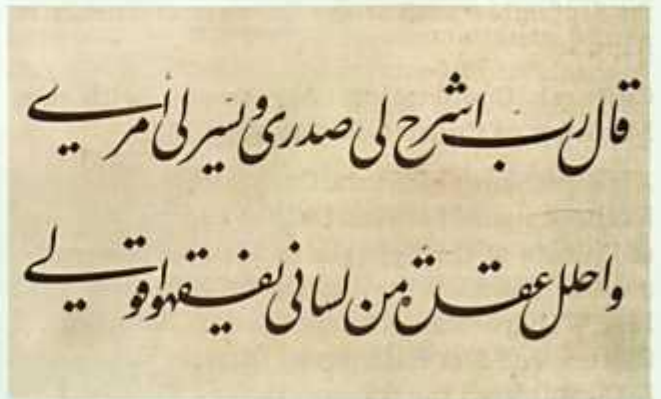 قال رب اشرح لی صدری ویسر لی أمری
واحلل عقدة من لسانی یفقهوا قولی